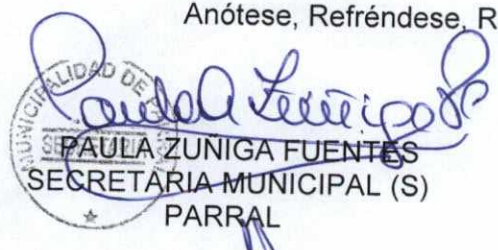 Anótese, Refréndese, R
MUNICIPALIDAD DE
SECRETARIA
PAULA ZUÑIGA FUENTES
SECRETARIA MUNICIPAL (S)
PARRAL